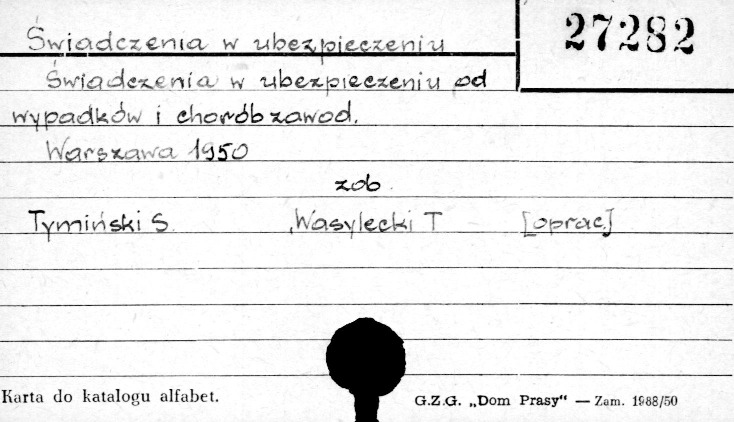 Świadczenia w ubezpieczeniu
27282
Świadczenia w ubezpieczeniu od
wypadków i chorób zawod.
Warszawa 1950
zob.
Tymiński S. , Wasylecki T [oprac.]
Karta do katalogu alfabet.
G.Z.G. „Dom Prasy“ — Zam. 1988/50